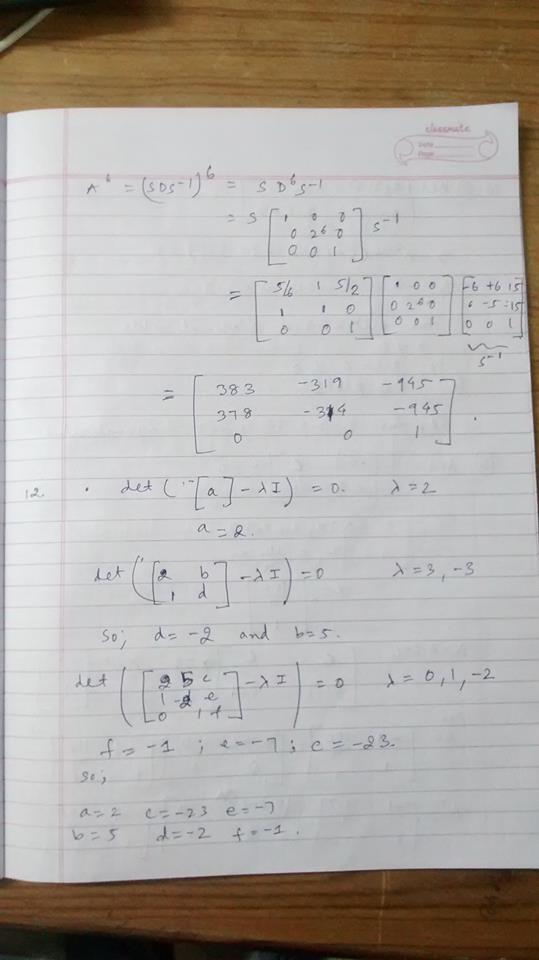 classmate
Date
Page
A^6 = (SDS^-1)^6 = S D^6 S^-1
= S [ 1 0 0 ; 0 2^6 0 ; 0 0 1 ] S^-1
= [ 5/6 1 5/2 ; 1 1 0 ; 0 0 1 ] [ 1 0 0 ; 0 2^6 0 ; 0 0 1 ] [ -6 +6 15 ; 6 -5 -15 ; 0 0 1 ]
S^-1
= [ 383 -319 -945 ; 378 -314 -945 ; 0 0 1 ] .
12. • det ( [a] - λI ) = 0. λ = 2
a = 2.
det ( [ 2 b ; 1 d ] - λI ) = 0 λ = 3, -3
So; d = -2 and b = 5.
det ( [ 2 5 c ; 1 -2 e ; 0 1 f ] - λI ) = 0 λ = 0, 1, -2
f = -1 ; e = -7 ; c = -23.
so;
a = 2 c = -23 e = -7
b = 5 d = -2 f = -1 .